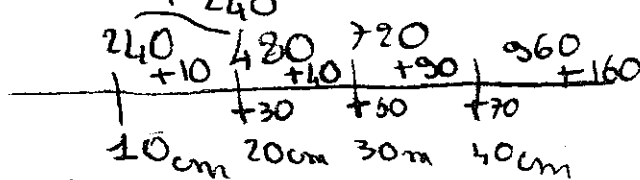 240
240 480 720 960
+10 +40 +90 +160
+30 +50 +70
10cm 20cm 30m 40cm